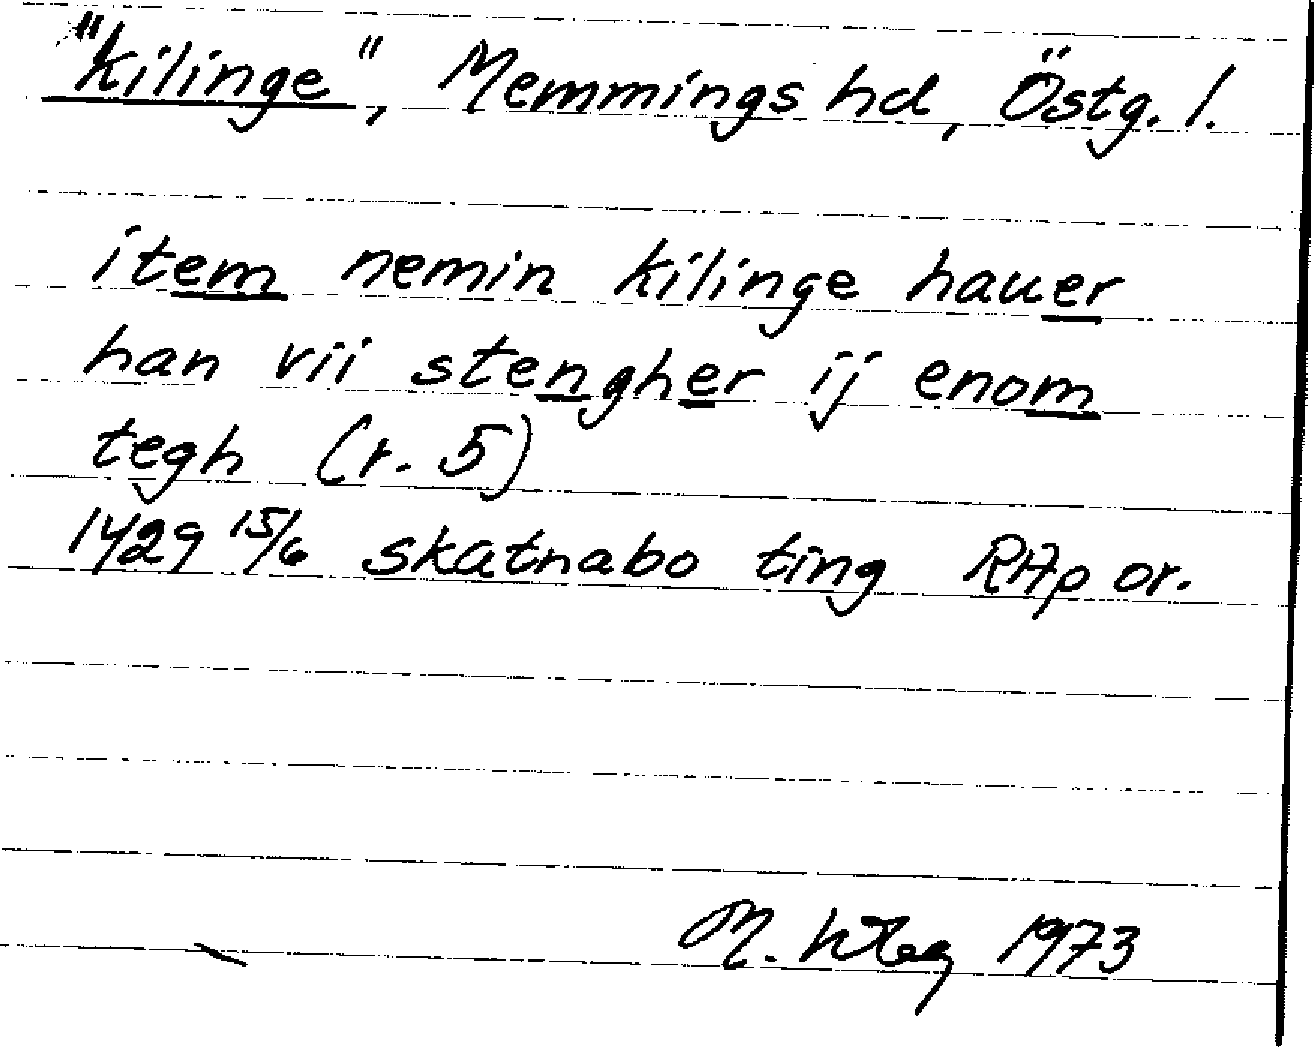 "kilinge", Memmings hd, Östg. l.
item nemin kilinge hauer
han vii stengher ij enom
tegh (r. 5)
1429 15/6 skatnabo ting RAp or.
M. 1973